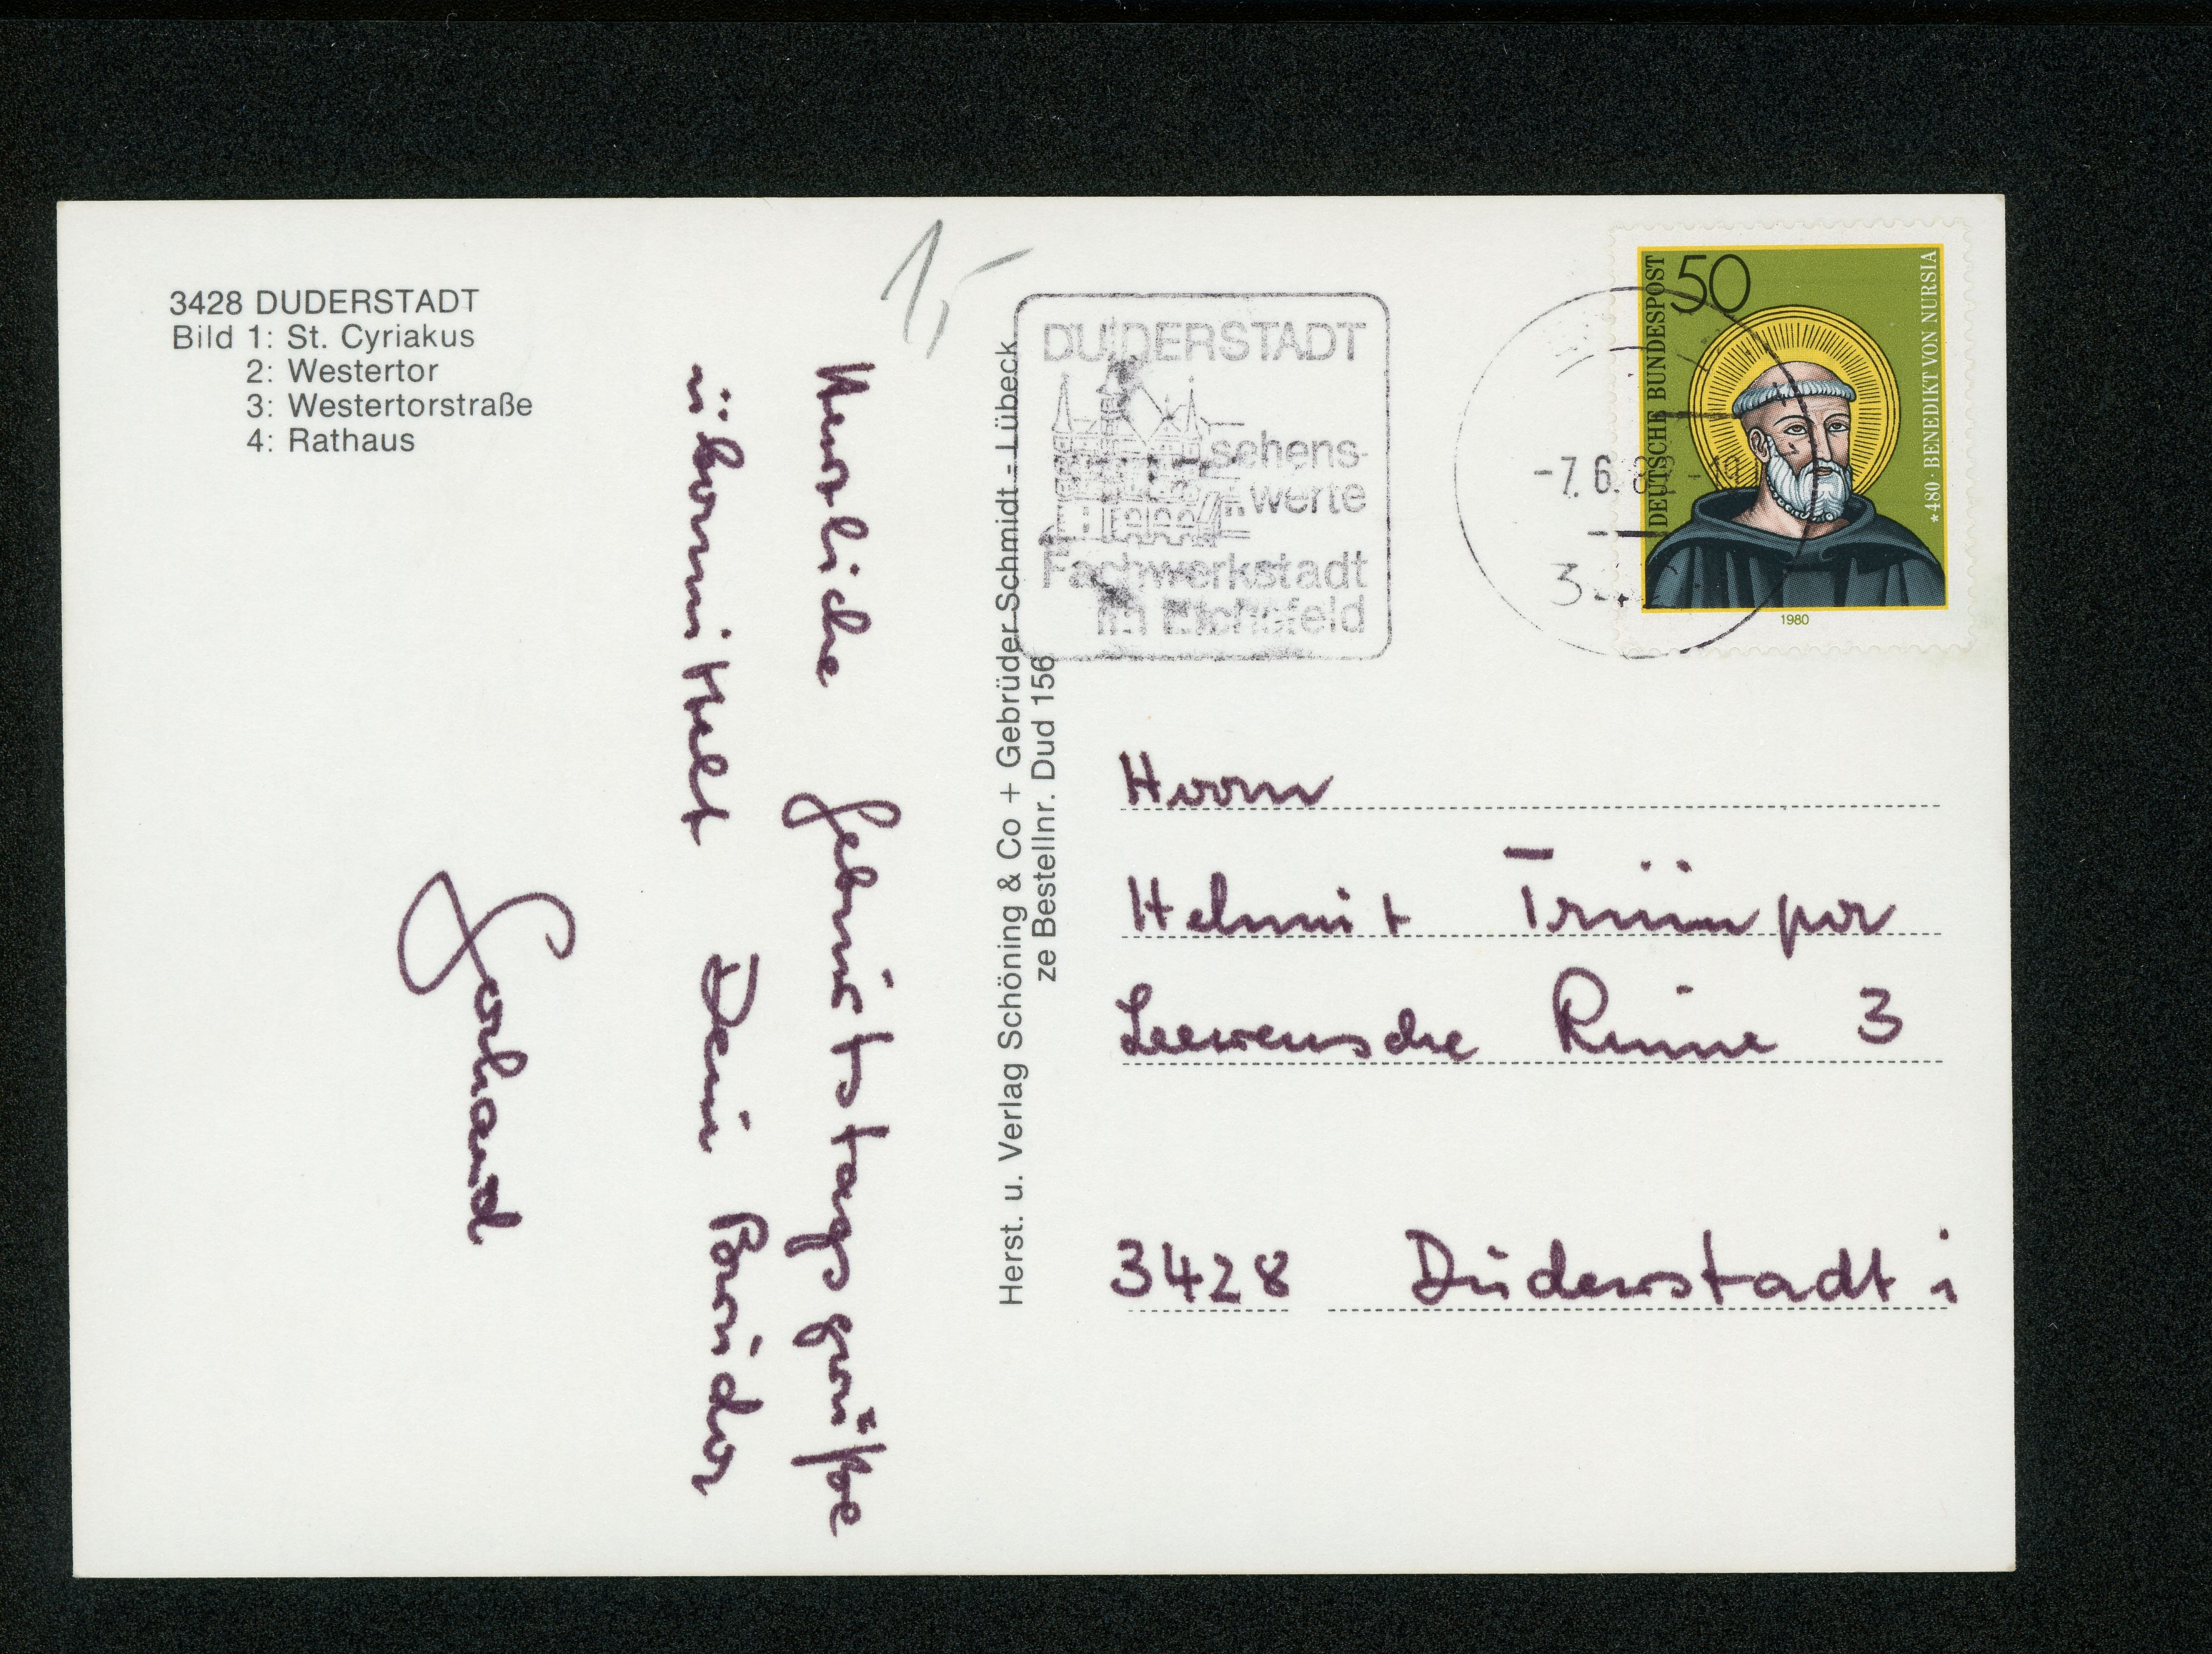 3428 DUDERSTADT
Bild 1: St. Cyriakus
2: Westertor
3: Westertorstraße
4: Rathaus
1,-
Herzliche Geburtstagsgrüße
übermittelt Dein Bruder
Gerhard
Herst. u. Verlag Schöning & Co + Gebrüder Schmidt - Lübeck
ze Bestellnr. Dud 156
DUDERSTADT
sehens-
werte
Fachwerkstadt
im Eichsfeld
-7.6.8
3
DEUTSCHE BUNDESPOST
50
*480 · BENEDIKT VON NURSIA
1980
Herrn
Helmut Trümper
Rinne 3
3428 Duderstadt 1